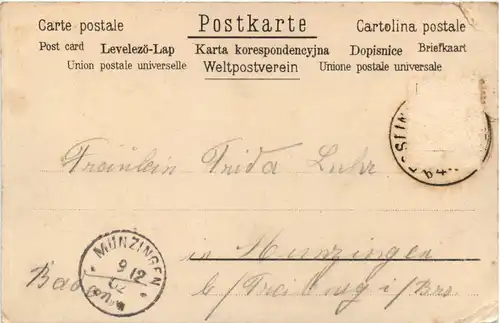 Carte postale Postkarte Cartolina postale
Post card Levelező-Lap Karta korespondencyjna Dopisnice Briefkaart
Union postale universelle Weltpostverein Unione postale universale
Fräulein Frida Luhr
MUNZINGEN
9 12
02
in Munzingen
Baden
b/Freiburg i/Brs.